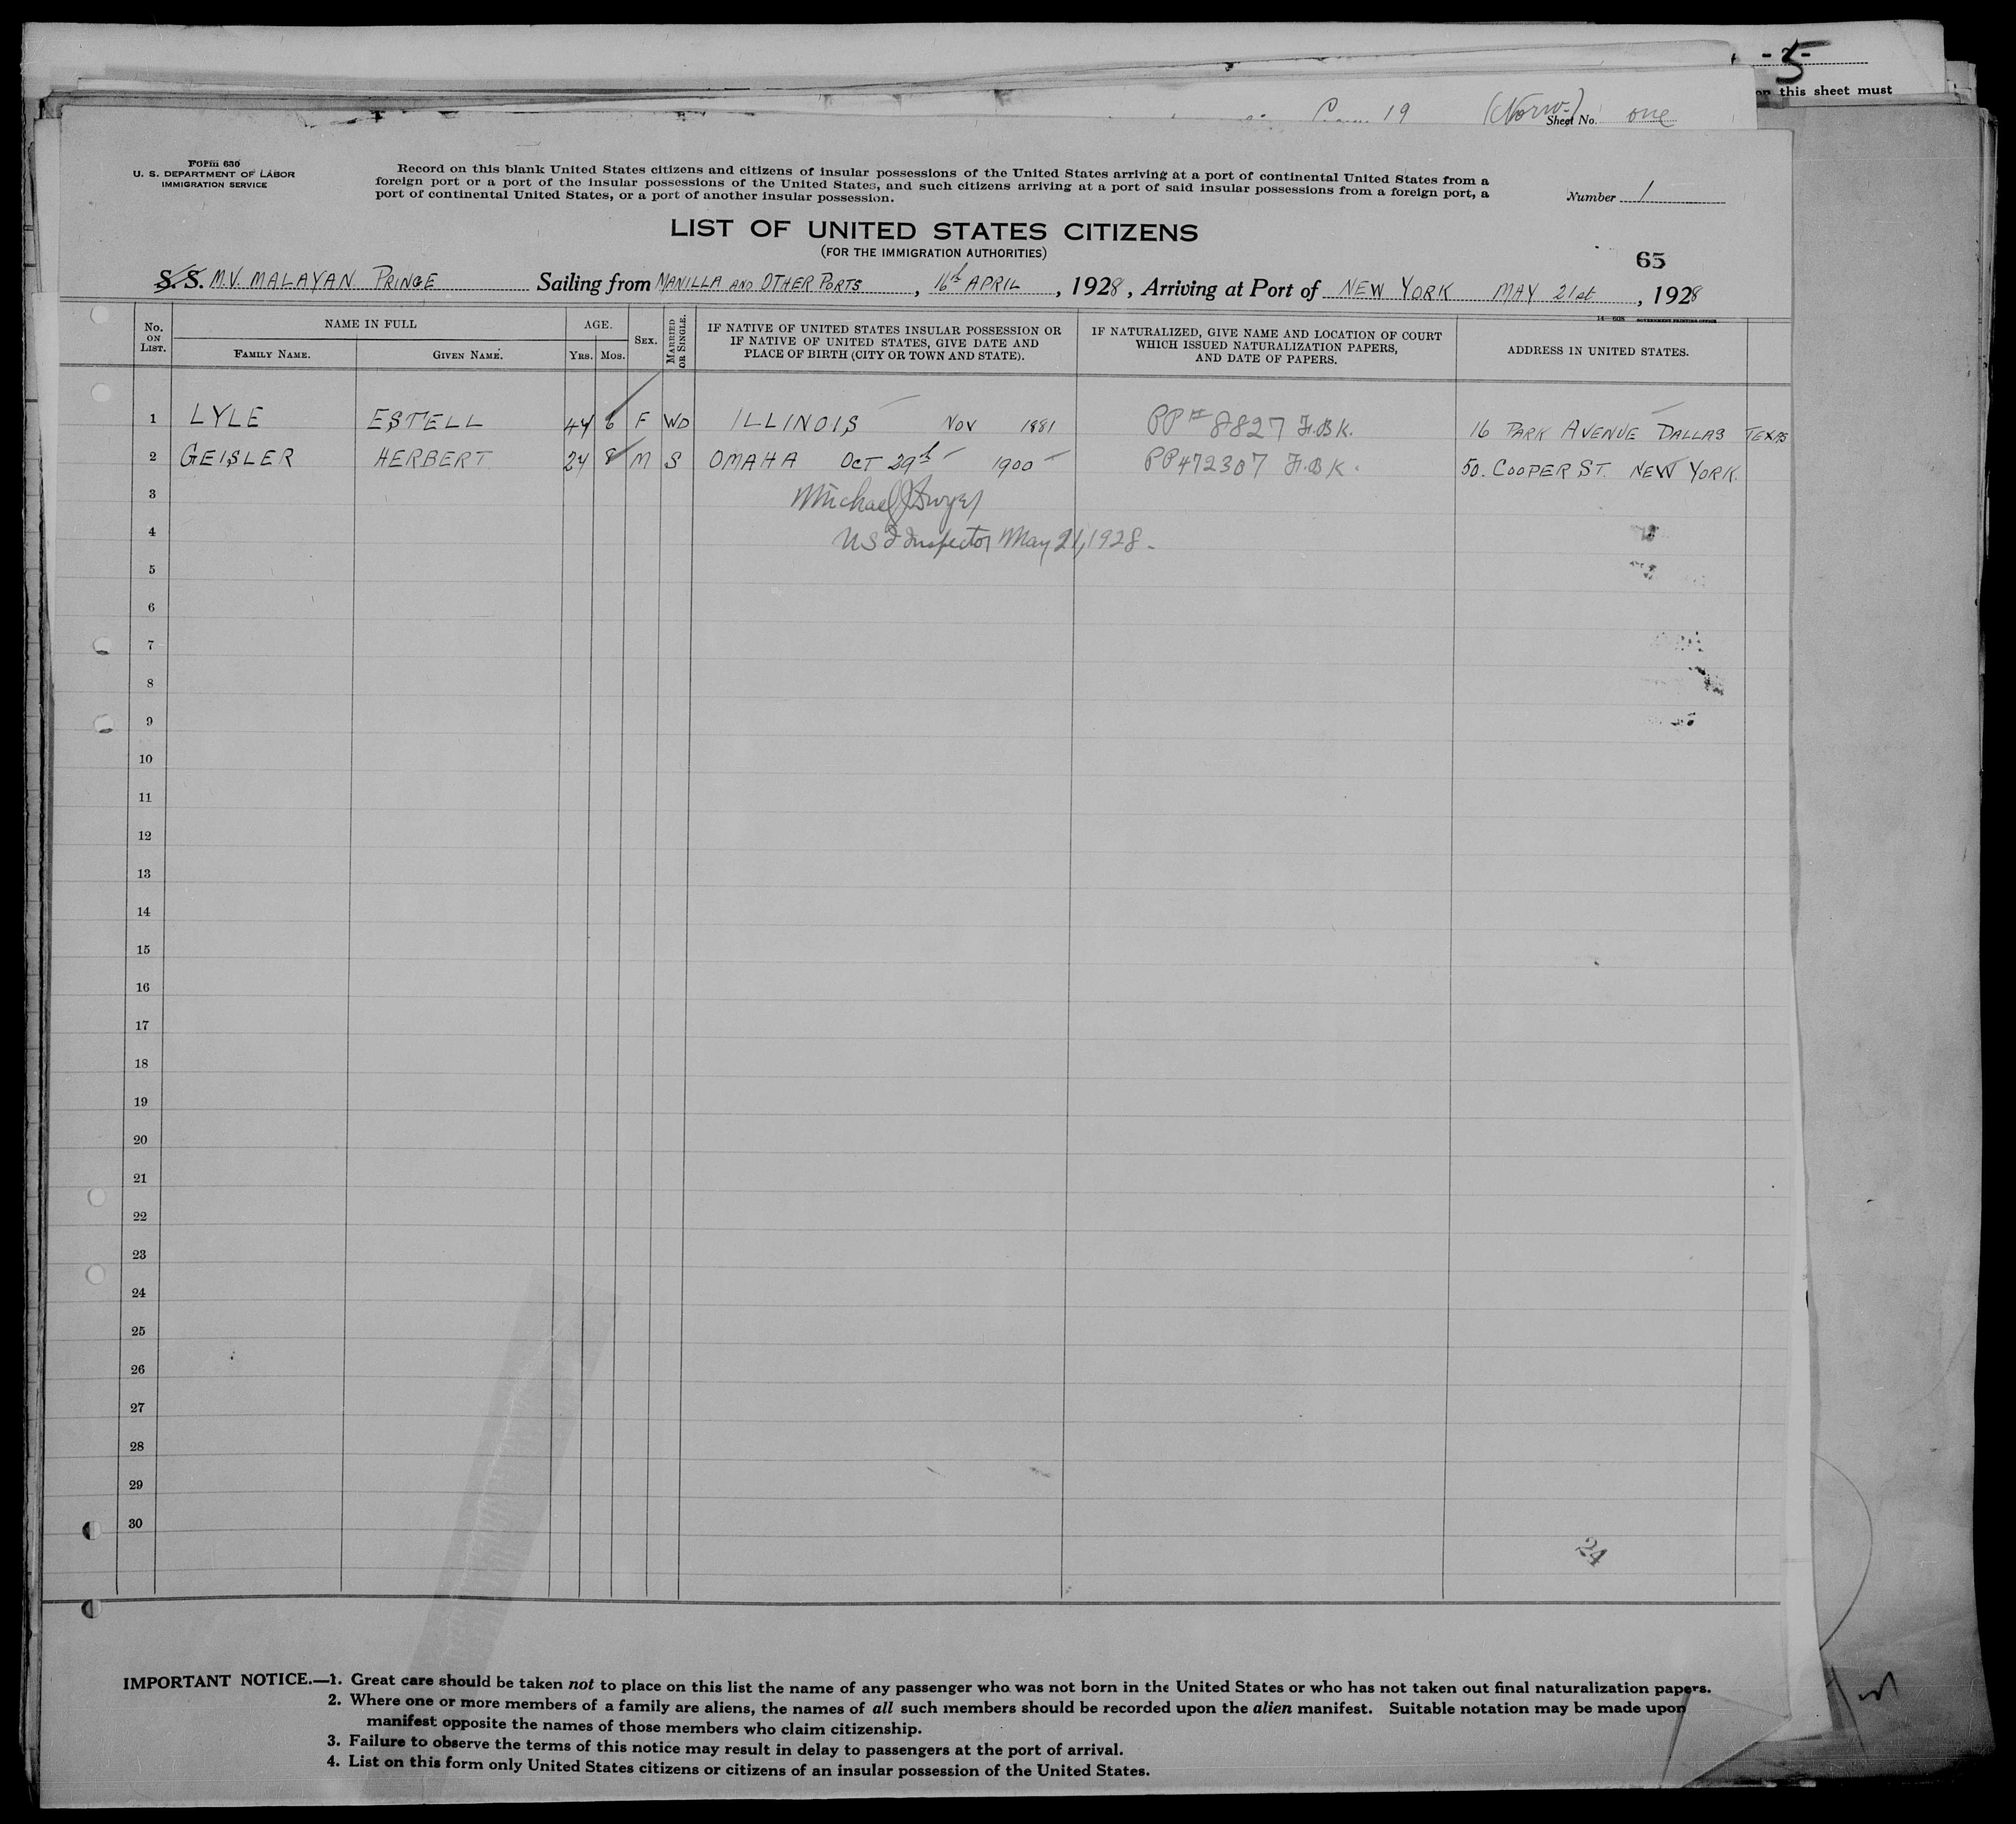 - 5 -
on this sheet must
19 (Norw.) Sheet No. one
Form 630
U. S. DEPARTMENT OF LABOR
IMMIGRATION SERVICE
Record on this blank United States citizens and citizens of insular possessions of the United States arriving at a port of continental United States from a
foreign port or a port of the insular possessions of the United States, and such citizens arriving at a port of said insular possessions from a foreign port, a
port of continental United States, or a port of another insular possession.
Number 1
LIST OF UNITED STATES CITIZENS
(FOR THE IMMIGRATION AUTHORITIES)
65
S. S. M.V. MALAYAN PRINCE Sailing from MANILLA AND OTHER PORTS, 16th APRIL, 1928, Arriving at Port of NEW YORK MAY 21st, 1928
14—608 GOVERNMENT PRINTING OFFICE
No. ON LIST. NAME IN FULL FAMILY NAME. GIVEN NAME. AGE. YRS. MOS. SEX. MARRIED OR SINGLE. IF NATIVE OF UNITED STATES INSULAR POSSESSION OR IF NATIVE OF UNITED STATES, GIVE DATE AND PLACE OF BIRTH (CITY OR TOWN AND STATE). IF NATURALIZED, GIVE NAME AND LOCATION OF COURT WHICH ISSUED NATURALIZATION PAPERS, AND DATE OF PAPERS. ADDRESS IN UNITED STATES.
1 LYLE ESTELL 44 6 F WD ILLINOIS NOV 1881 PP# 8827 F.B.K. 16 PARK AVENUE DALLAS TEXAS
2 GEISLER HERBERT 24 8 M S OMAHA OCT 29th 1900 PP472307 F.B.K. 50. COOPER ST. NEW YORK.
3 Michael J Dwyer
4 US I Inspector May 21, 1928.
5
6
7
8
9
10
11
12
13
14
15
16
17
18
19
20
21
22
23
24
25
26
27
28
29
30
24
IMPORTANT NOTICE.—1. Great care should be taken not to place on this list the name of any passenger who was not born in the United States or who has not taken out final naturalization papers.
2. Where one or more members of a family are aliens, the names of all such members should be recorded upon the alien manifest. Suitable notation may be made upon
manifest opposite the names of those members who claim citizenship.
3. Failure to observe the terms of this notice may result in delay to passengers at the port of arrival.
4. List on this form only United States citizens or citizens of an insular possession of the United States.